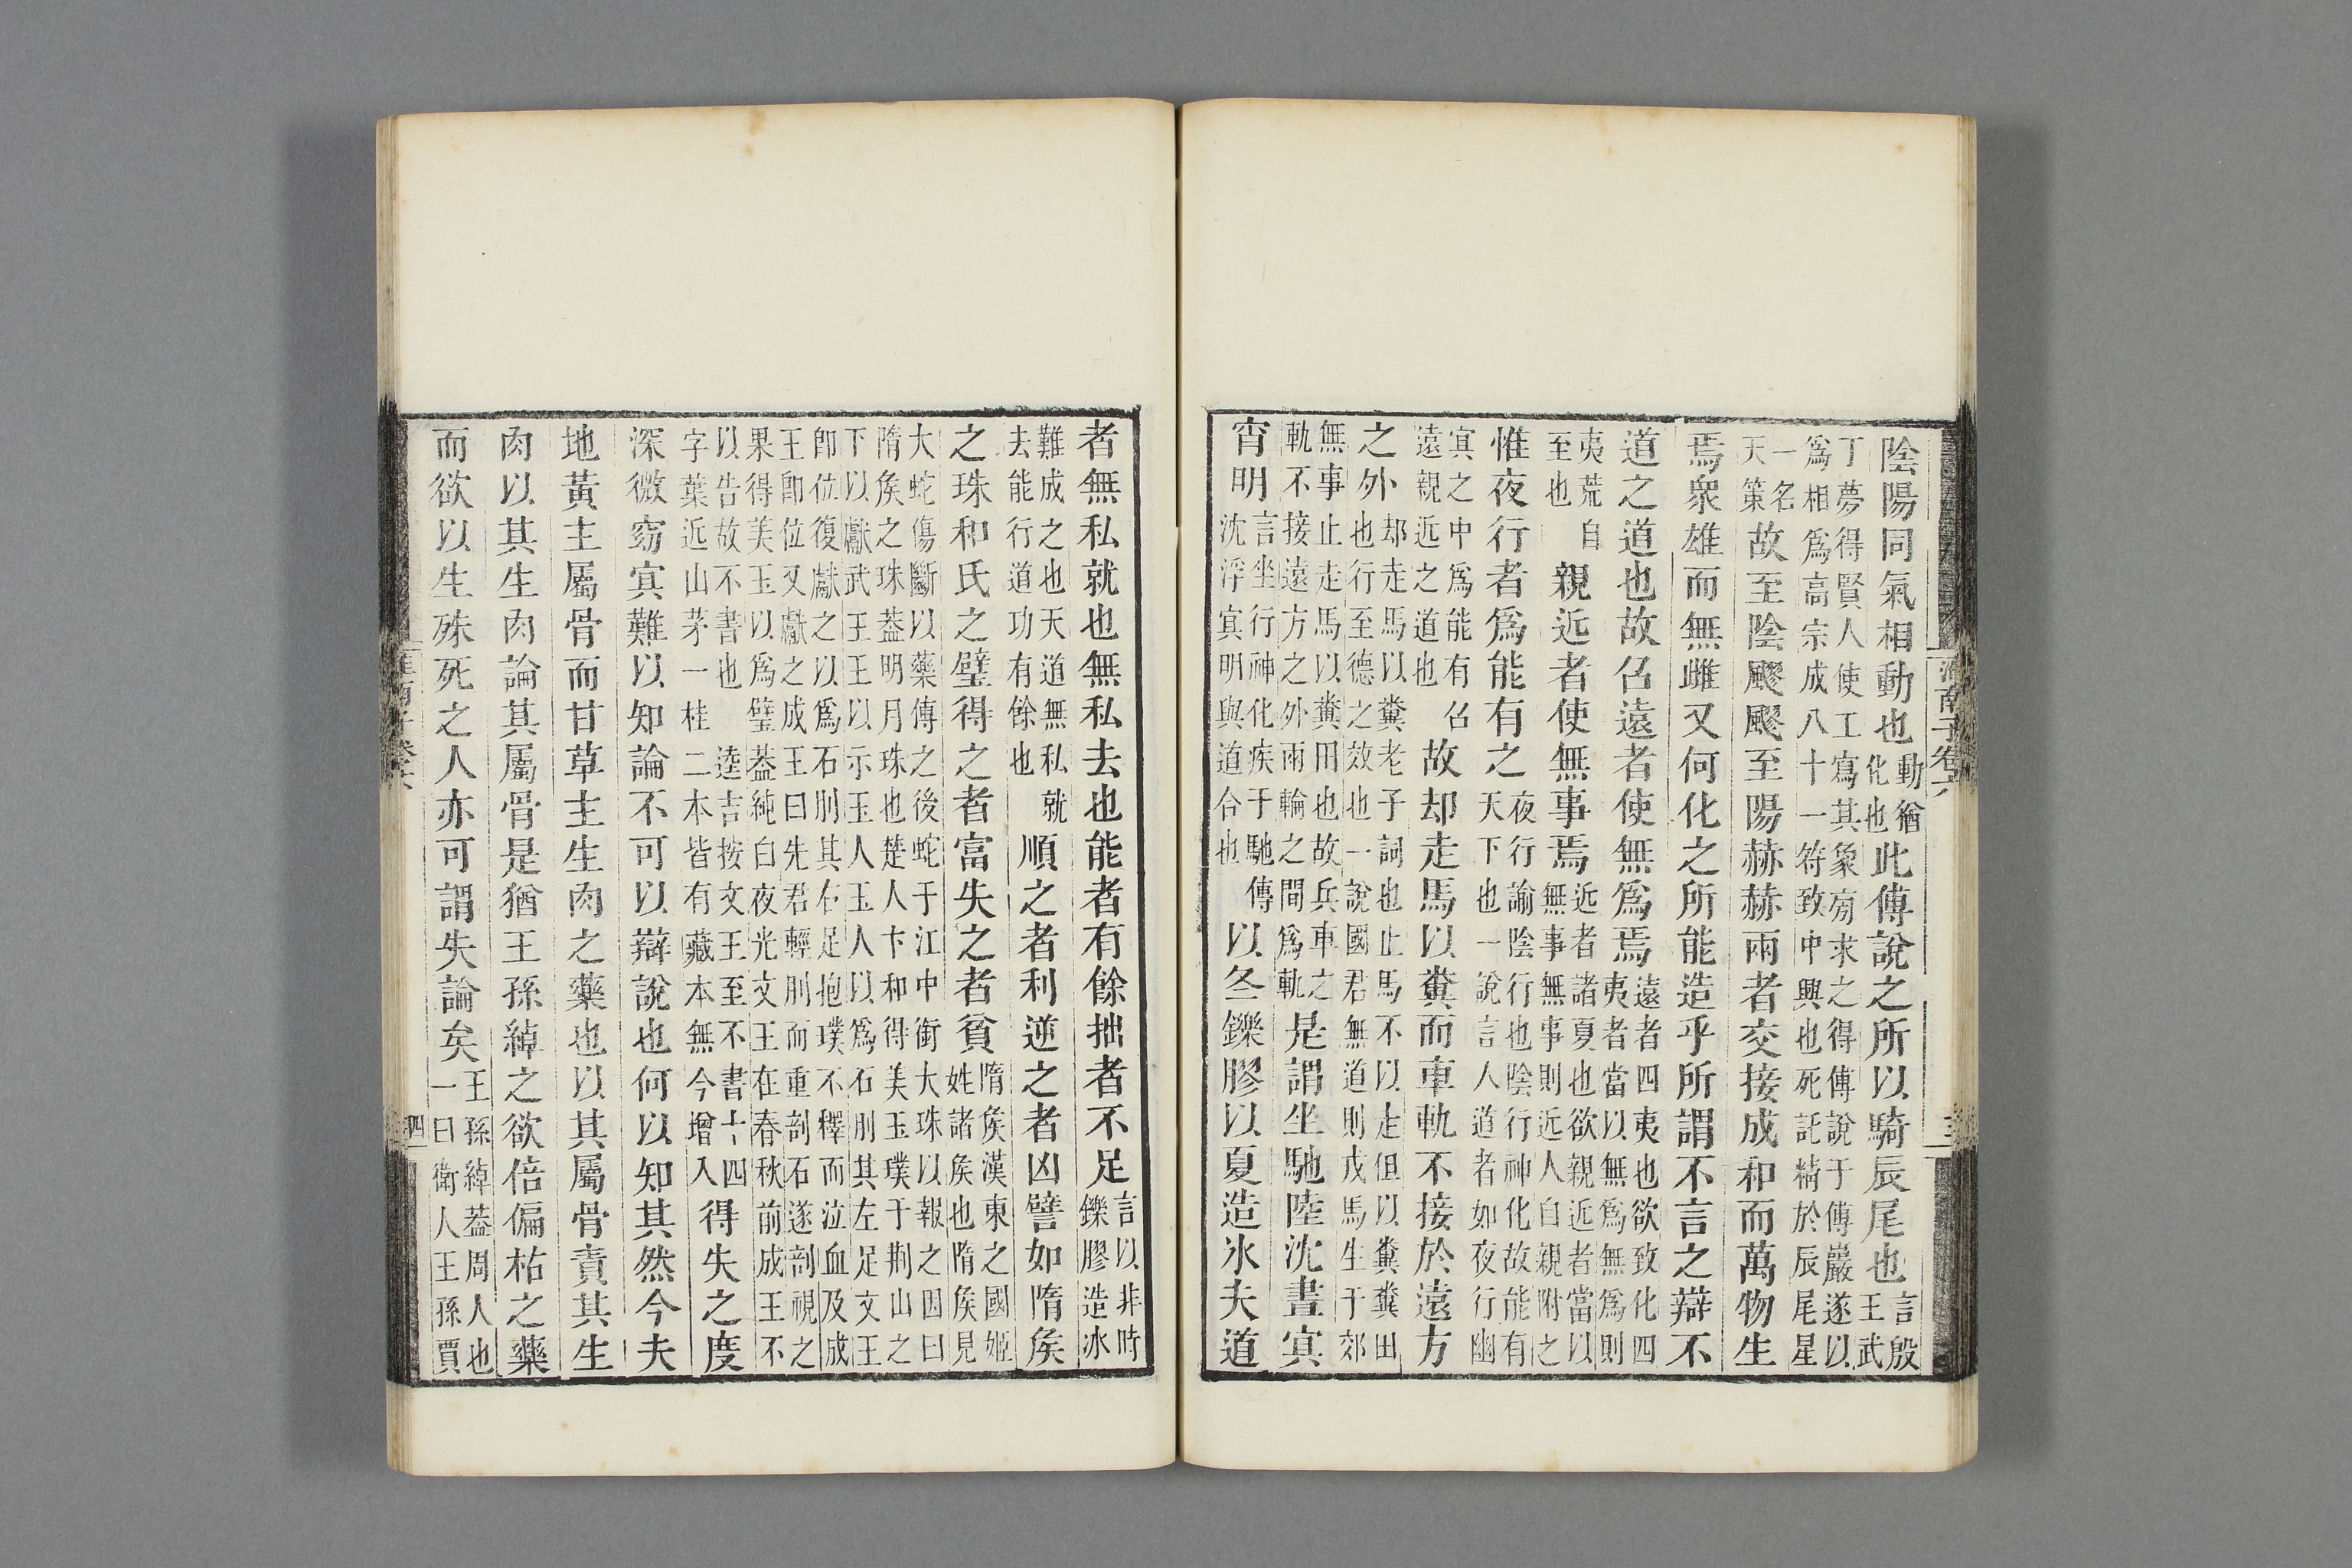 陰陽同氣相動也動猶化也此傳說之所以騎辰尾也言殷王武
丁夢得賢人使工寫其象旁求之得傅說于傅巖遂以
爲相爲高宗成八十一符致中興也死託精於辰尾星
一名天策故至陰飂飂至陽赫赫兩者交接成和而萬物生
焉衆雄而無雌又何化之所能造乎所謂不言之辯不
道之道也故召遠者使無爲焉遠者四夷也欲致化四夷者當以無爲無爲則
夷荒自至也親近者使無事焉近者諸夏也欲親近者當以無事無事則近人自親附之
惟夜行者爲能有之夜行諭陰行也陰行神化故能有天下也一說言人道者如夜行幽
冥之中爲能有召遠親近之道也故却走馬以糞而車軌不接於遠方
之外却走馬以糞老子詞也止馬不以走但以糞糞田也行至德之效也一說國君無道則戎馬生于郊
無事止走馬以糞田也故兵車之軌不接遠方之外兩輪之間爲軌是謂坐馳陸沈晝冥
宵明言坐行神化疾于馳傳沈浮冥明與道合也以冬鑠膠以夏造冰夫道
淮南子卷六
三
者無私就也無私去也能者有餘拙者不足言以非時鑠膠造冰
難成之也天道無私就去能行道功有餘也順之者利逆之者凶譬如隋矦
之珠和氏之璧得之者富失之者貧隋矦漢東之國姬姓諸矦也隋矦見
大蛇傷斷以藥傅之後蛇于江中銜大珠以報之因曰
隋矦之珠葢明月珠也楚人卞和得美玉璞于荆山之
下以獻武王王以示玉人玉人以爲石刖其左足文王
卽位復獻之以爲石刖其右足抱璞不釋而泣血及成
王卽位又獻之成王曰先君輕刖而重剖石遂剖視之
果得美玉以爲璧葢純白夜光文王在春秋前成王不
以告故不書也逵吉按文王至不書十四字葉近山茅一桂二本皆有藏本無今增入得失之度
深微窈冥難以知論不可以辯說也何以知其然今夫
地黃主屬骨而甘草主生肉之藥也以其屬骨責其生
肉以其生肉論其屬骨是猶王孫綽之欲倍偏枯之藥
而欲以生殊死之人亦可謂失論矣王孫綽葢周人也一曰衛人王孫賈
淮南子卷六
四